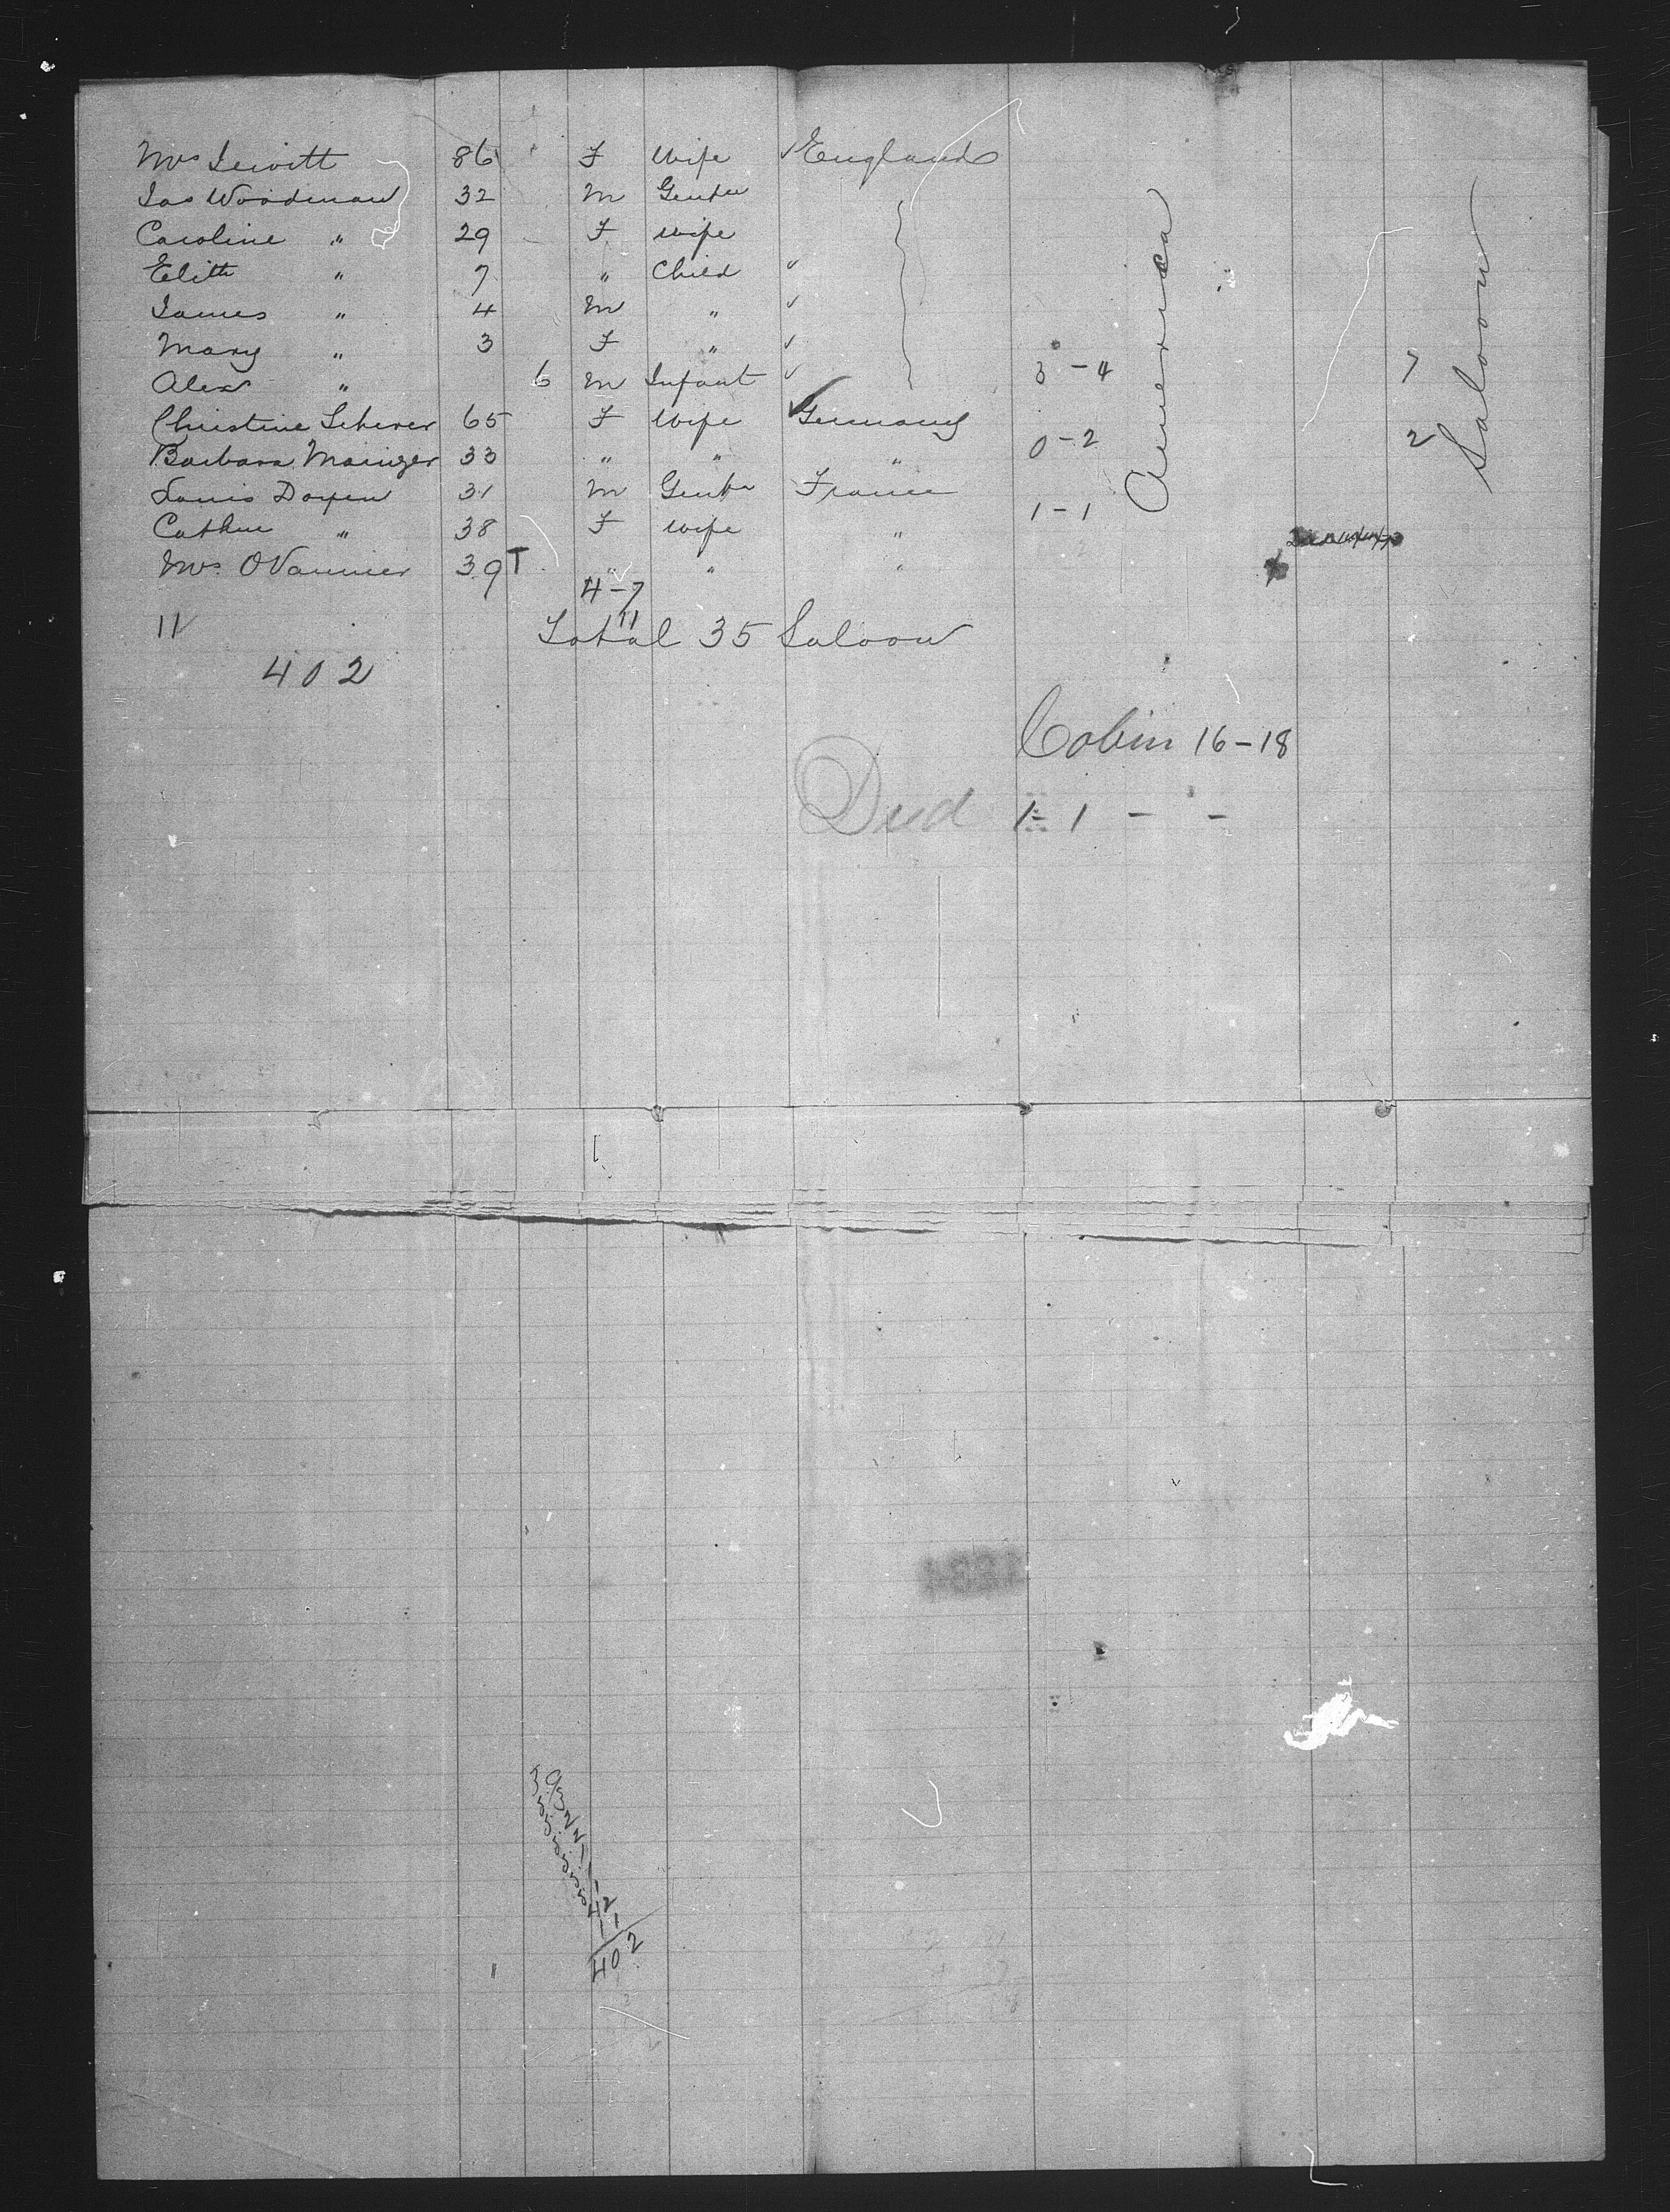 Mrs Lewitt 86 F Wife England
Jas Woodman 32 M Gentn
Caroline " 29 F Wife
Edith " 7 " Child "
James " 4 M " "
Mary " 3 F " "
Alex " 6 M Infant " 3-4 7
Christine Scherer 65 F Wife Germany
Barbara Mainzer 33 " " " 0-2 2
Louis Doyen 31 M Gentn France
Cathne " 38 F Wife " 1-1
Mrs. O Vannier 39 T " " "
4-7
11
11
Total 35 Saloon
402
America
Saloon
Cabin 16-18
Died 1-1 - -
402